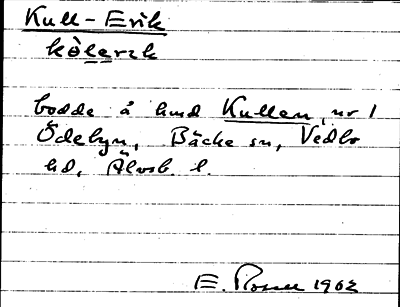 Kull-Erik
kòlerɪk
bodde å hmd Kullen, nr 1
Ödebyn, Bäcke sn, Vedbo
hd, Älvsb. l.
E. Rosell 1962